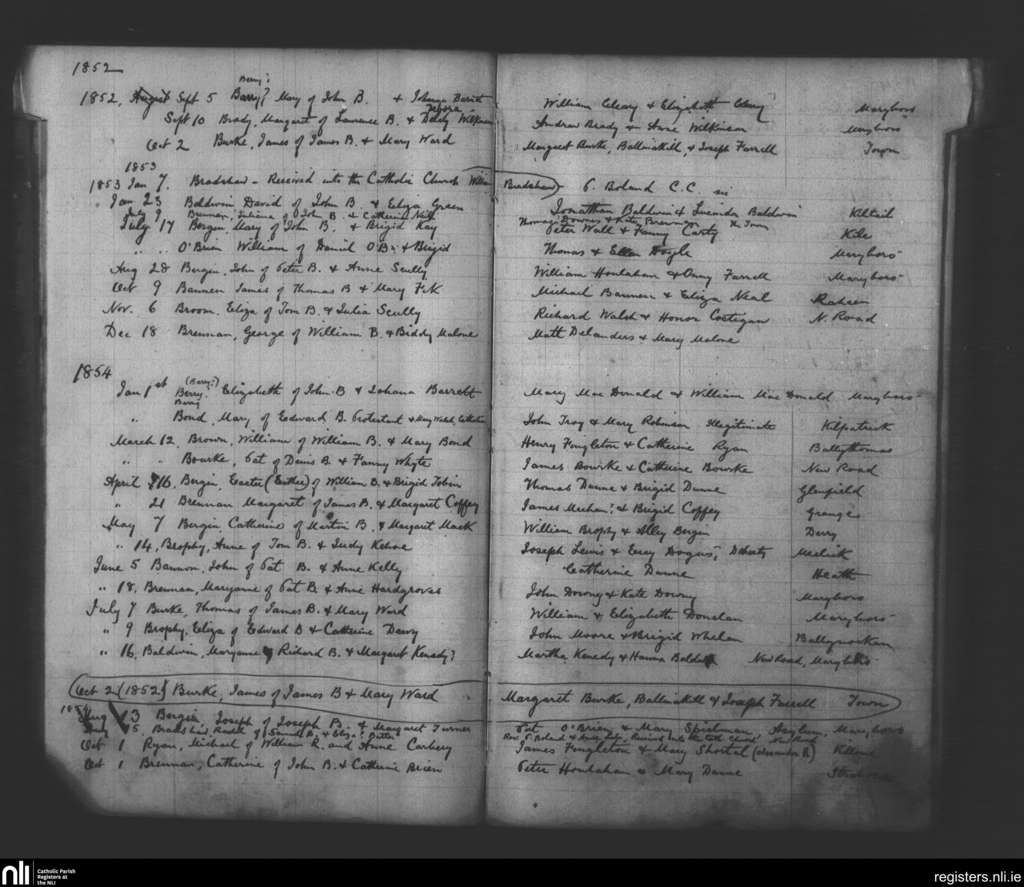 1852
Barry?
1852, August Sept 5 Barry? Mary of John B. + Johanna Barrett William Cleary & Elizabeth Cleary Maryboro
Sept 10 Brady, Margaret of Laurence B. & Wilkinson Andrew Brady & Anne Wilkinson Maryboro
Oct 2 Burke, James of James B. & Mary Ward Margaret Burke, Ballinakill, & Joseph Farrell Town
1853
1853 Jan 7. Bradshaw - Received into the Catholic Church William Bradshaw C.C.
Jan 23 Baldwin David of John B. & Eliza Green Jonathan Baldwin & Lucinda Baldwin
July 9 Brennan, Juliana of John B. & Catherine Thomas Downey & Kate Brennan
July 17 Bergin, Mary of John B. & Brigid Kay Peter Wall & Fanny Carty Kile
" " O'Brien William of Daniel O'B. & Brigid Thomas & Ellen Doyle Maryboro
Aug 28 Bergin, John of Peter B. & Anne Scully William Houlahan & Farrell Maryboro
Oct 9 Bannon James of Thomas B & Mary Michael Bannon & Eliza Neal
Nov. 6 Broom, Eliza of Tom B. & Julia Scully Richard Walsh & Honor Costigan N. Road
Dec 18 Brennan, George of William B. & Biddy Malone Matt Delanders & Mary Malone
1854
(Barry?)
Jan 1st Berry. Elizabeth of John B & Johana Barrett Mary Mac Donald & William Mac Donald Maryboro
Barry
" Bond, Mary of Edward B. Protestant & John Troy & Mary Robinson Illegitimate Kilpatrick
March 12, Brown, William of William B. & Mary Bond Henry Fingleton & Catherine Ryan Ballythomas
" " Bourke, Pat of Denis B. & Fanny Whyte James Bourke & Catherine Bourke New Road
April 16, Bergin, Easter (Esther) of William B. & Brigid Tobin Thomas Dunne & Brigid Dunne Glenfield
" 21 Brennan Margaret of James B. & Margaret Coffey James Meehan & Brigid Coffey Grange
May 7 Bergin, Catherine of Martin B. & Margaret Mack William Brophy & Alley Bergin Derry
" 14, Brophy, Anne of Tom B. & Judy Kehoe Joseph Lewis &
June 5 Bannon, John of Pat B. & Anne Kelly Catherine Dunne Heath
" 18, Brennan, Maryanne of Pat B. & Anne Hardgroves John Dorony & Kate Dorony Maryboro
July 7 Burke, Thomas of James B. & Mary Ward William & Elizabeth Donelan Maryboro
" 9 Brophy, Eliza of Edward B & Catherine John Moore & Brigid Whelan
" 16, Baldwin, Maryanne of Richard B. & Margaret Kenedy? Martha Kenedy & Hanna Baldwin New Road, Maryboro
Oct 2 (1852) Burke, James of James B & Mary Ward Margaret Burke, Ballinakill & Joseph Farrell Town
1854
Aug 13 Bergin, Joseph of Joseph B. & Margaret Turner Pat O'Brien & Mary Asylum, Maryboro
Oct 1 Ryan, Michael of William R. and Anne Carbery James Fingleton & Mary Shortel
Oct 1 Brennan, Catherine of John B. & Catherine Brien Peter Houlahan & Mary Dunne
nli Catholic Parish
Registers at
the NLI
registers.nli.ie